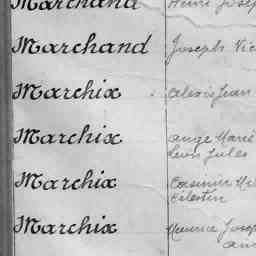 Marchand Henri Josep
Marchand Joseph Vic
Marchix Alexis Jean
Marchix Ange Marie
Léon Jules
Marchix Casimir
Célestin
Marchix Maurice Josep